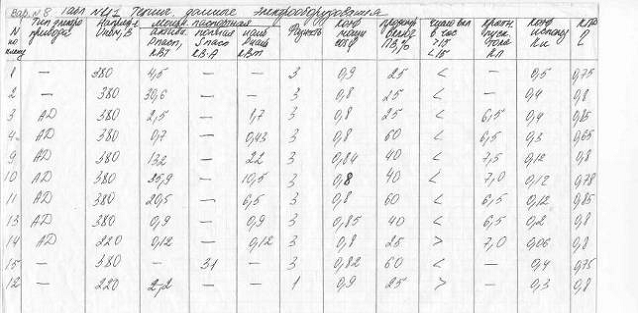 вар. N 8 табл N 4.2 Технич. данные электрооборудования
N по плану | Тип привода | Напряж. Uном, В | мощн. паспортная активн. Рпасп, кВт | полная Sпасп кВ·А | наиб Рнаиб кВт | Фазность | Коэф мощн cosφ | продолж включ ПВ,% | число вкл в час >15 <15 | кратн. пуск. тока Кп | Коэф использ Ки | КПД
1 — 380 4,5 — — 3 0,9 25 < — 0,5 0,75
2 — 380 30,6 — — 3 0,8 25 < — 0,4 0,8
3 АД 380 2,5 — 1,7 3 0,8 25 < 6,5 0,4 0,85
4 АД 380 0,7 — 0,43 3 0,8 60 < 6,5 0,3 0,65
9 АД 380 132 — 22 3 0,84 40 < 7,5 0,12 0,8
10 АД 380 25,9 — 10,5 3 0,8 40 < 7,0 0,12 0,78
11 АД 380 20,5 — 6,5 3 0,8 60 < 6,5 0,12 0,85
13 АД 380 0,9 — 0,9 3 0,85 40 < 6,5 0,2 0,8
14 АД 220 0,12 — 0,12 3 0,8 25 > 7,0 0,06 0,8
15 — 380 — 31 — 3 0,82 60 < — 0,4 0,75
12 — 220 2,2 — — 1 0,9 25 > — 0,3 0,8